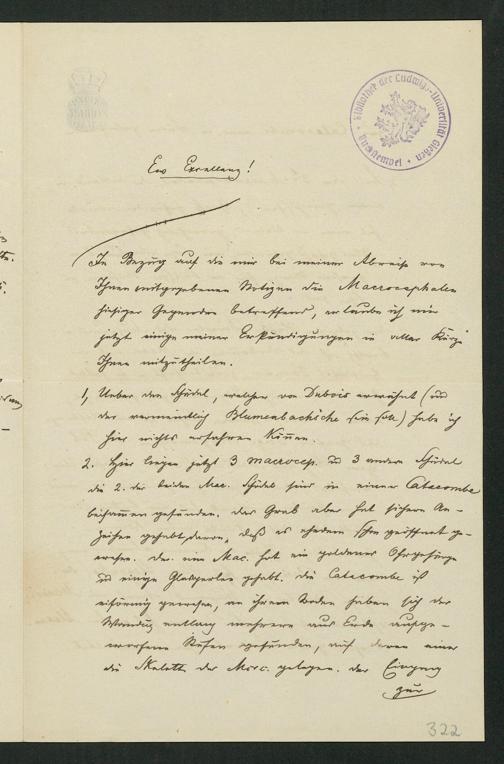 Bibliothek der Ludwigs-Universität Gießen
Ew Excellenz!
In Bezug auf die mir bei meiner Abreise von
Ihnen mitgegebenen Notizen die Macrocephalen
hiesiger Gegenden betreffend, erlaube ich mir
jetzt einige meiner Erkundigungen in aller Kürze
Ihnen mitzutheilen.
1, Ueber den Schädel, welcher von Dubois erwähnt (und
der vermeintlich Blumenbachsche sein soll) habe ich
hier nichts erfahren können.
2. Hier liegen jetzt 3 macrocep. und 3 andere Schädel
die 2. der beiden Mac. Schädel sind in einer Catecombe
beisammen gefunden. das Grab aber hat sichere An-
zeichen gehabt davon, daß es ehedem schon geöffnet ge-
wesen. Der eine Mac. hat ein goldenes Ohrgehänge
und einige Glasperlen gehabt. die Catecombe ist
eiförmig gewesen, an ihrem Boden haben sich der
Wandung entlang mehrere aus Erde aufge-
worfene Stufen gefunden, auf deren einer
die Skelette der Macc. gelegen. der Eingang
zur
322